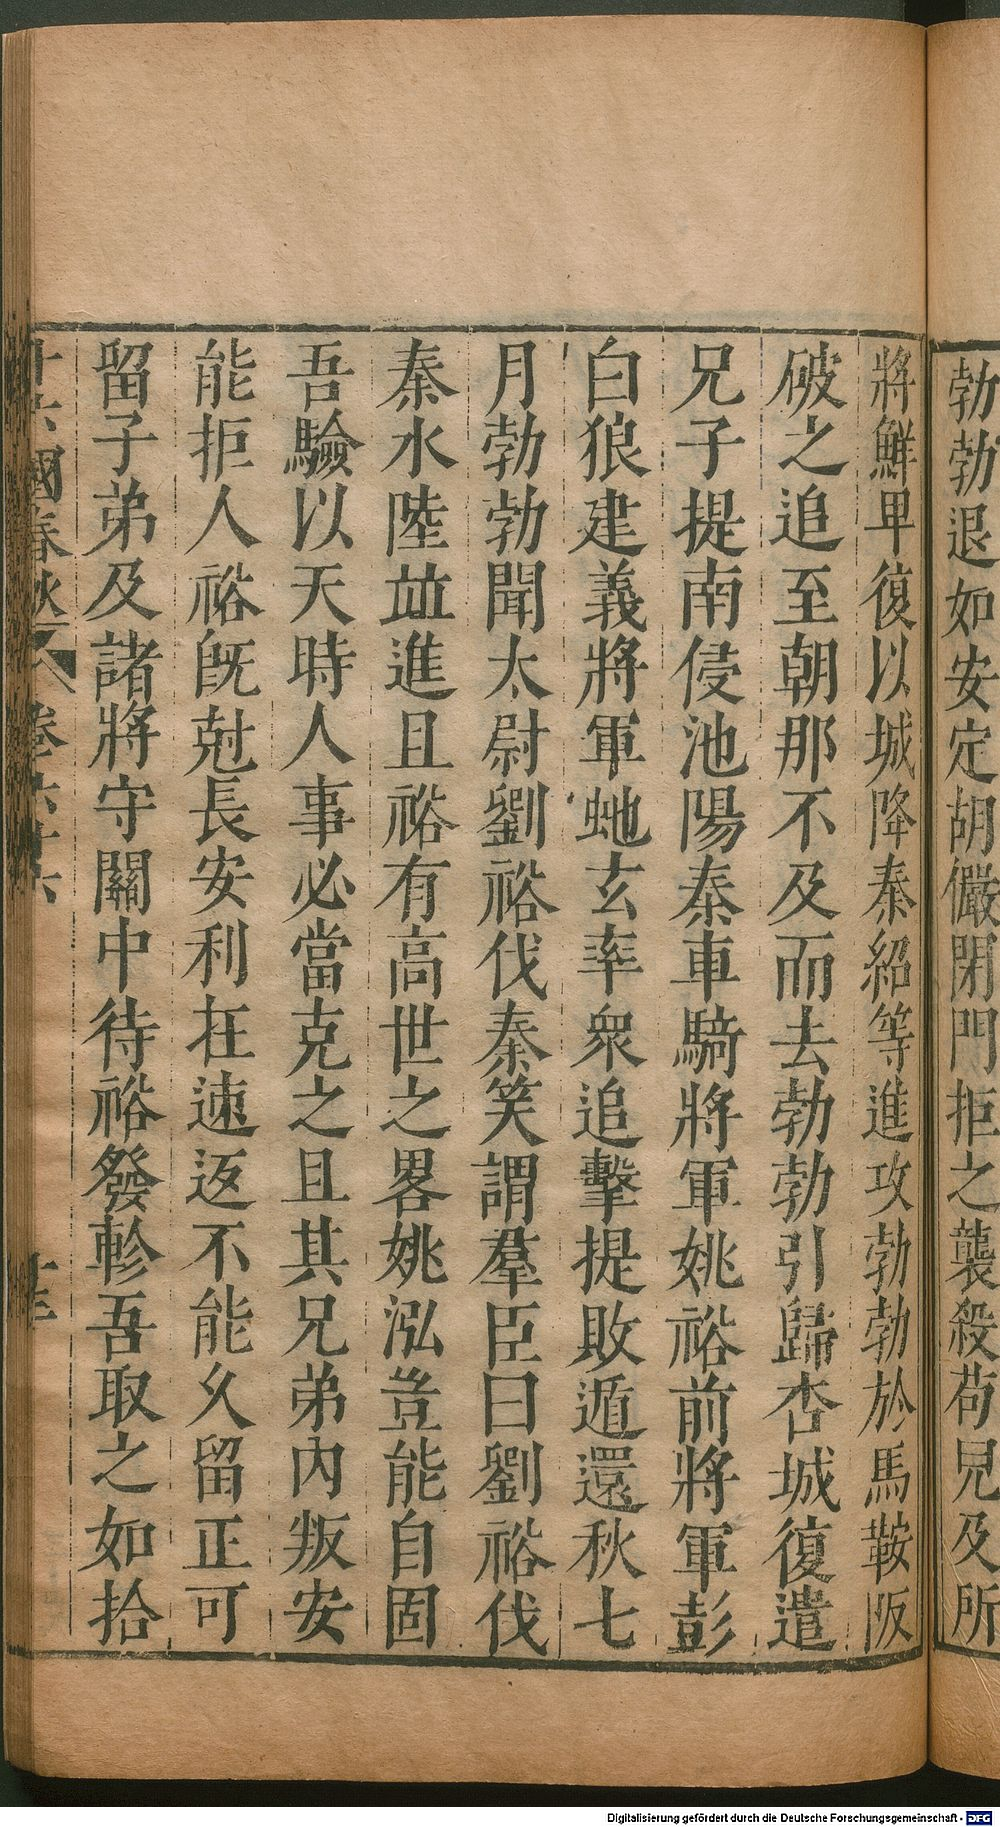 勃勃退如安定胡儼閉門拒之襲殺苟兒及所
將鮮卑復以城降秦紹等進攻勃勃於馬鞍阪
破之追至朝那不及而去勃勃引歸杏城復遣
兄子提南侵池陽秦車騎將軍姚裕前將軍彭
白狼建義將軍虵玄率衆追擊提敗遁還秋七
月勃勃聞太尉劉裕伐秦笑謂羣臣曰劉裕伐
秦水陸並進且裕有高世之畧姚泓豈能自固
吾驗以天時人事必當克之且其兄弟內叛安
能拒人裕旣尅長安利在速返不能久留正可
留子弟及諸將守關中待裕發軫吾取之如拾
十六國春秋 卷六十六 十三
Digitalisierung gefördert durch die Deutsche Forschungsgemeinschaft - DFG